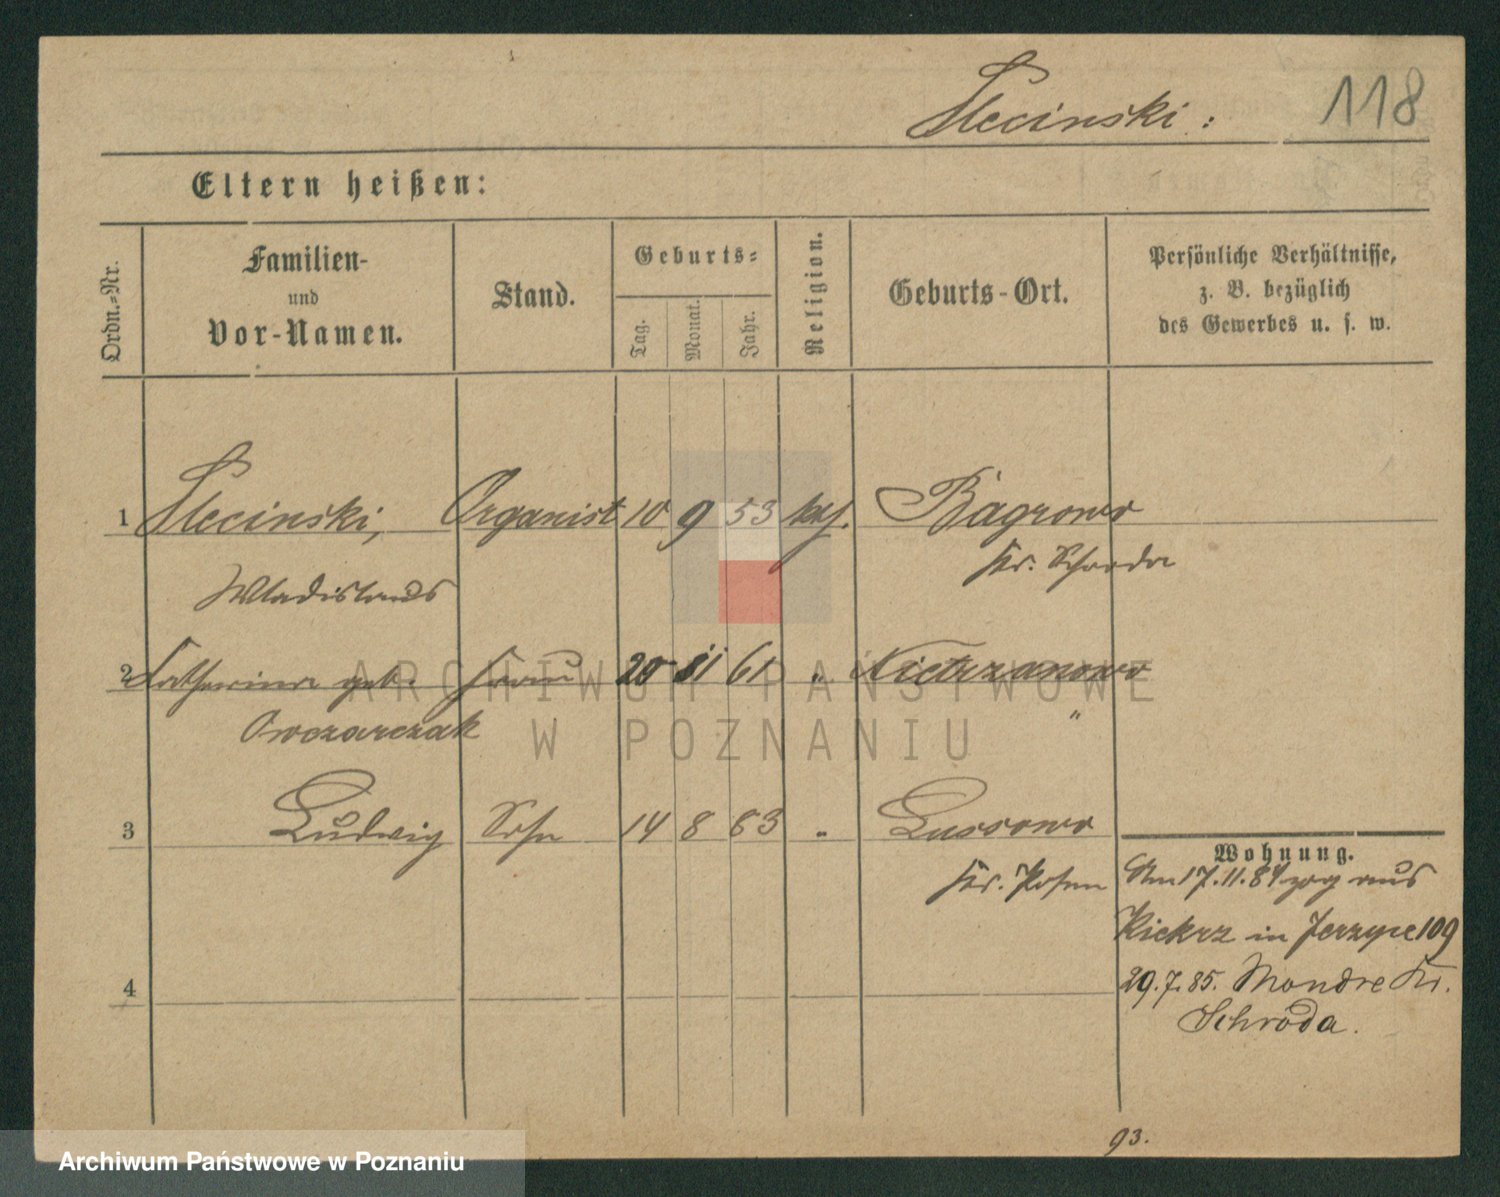 Slecinski:
118
Eltern heißen:
Ordn.=Nr.
Familien-
und
Vor-Namen.
Stand.
Geburts=
Tag.
Monat.
Jahr.
Religion.
Geburts-Ort.
Persönliche Verhältnisse,
z. B. bezüglich
des Gewerbes u. s. w.
1 Slecinski, Organist 10 9 53 kath. Bagrowo
Kr. Schroda
Wladislaus
2 Katharina geb. Frau 20 11 61 " Nietrzanowo
Owczarczak "
3 Ludwig Sohn 14 8 83 " Lussowo
Kr. Posen
Wohnung.
Am 17.11.84 zog aus
Kiekrz in Jerzyce 109
29.7.85. Mondre Kr.
Schroda.
4
93.
ARCHIWUM PAŃSTWOWE
W POZNANIU
Archiwum Państwowe w Poznaniu